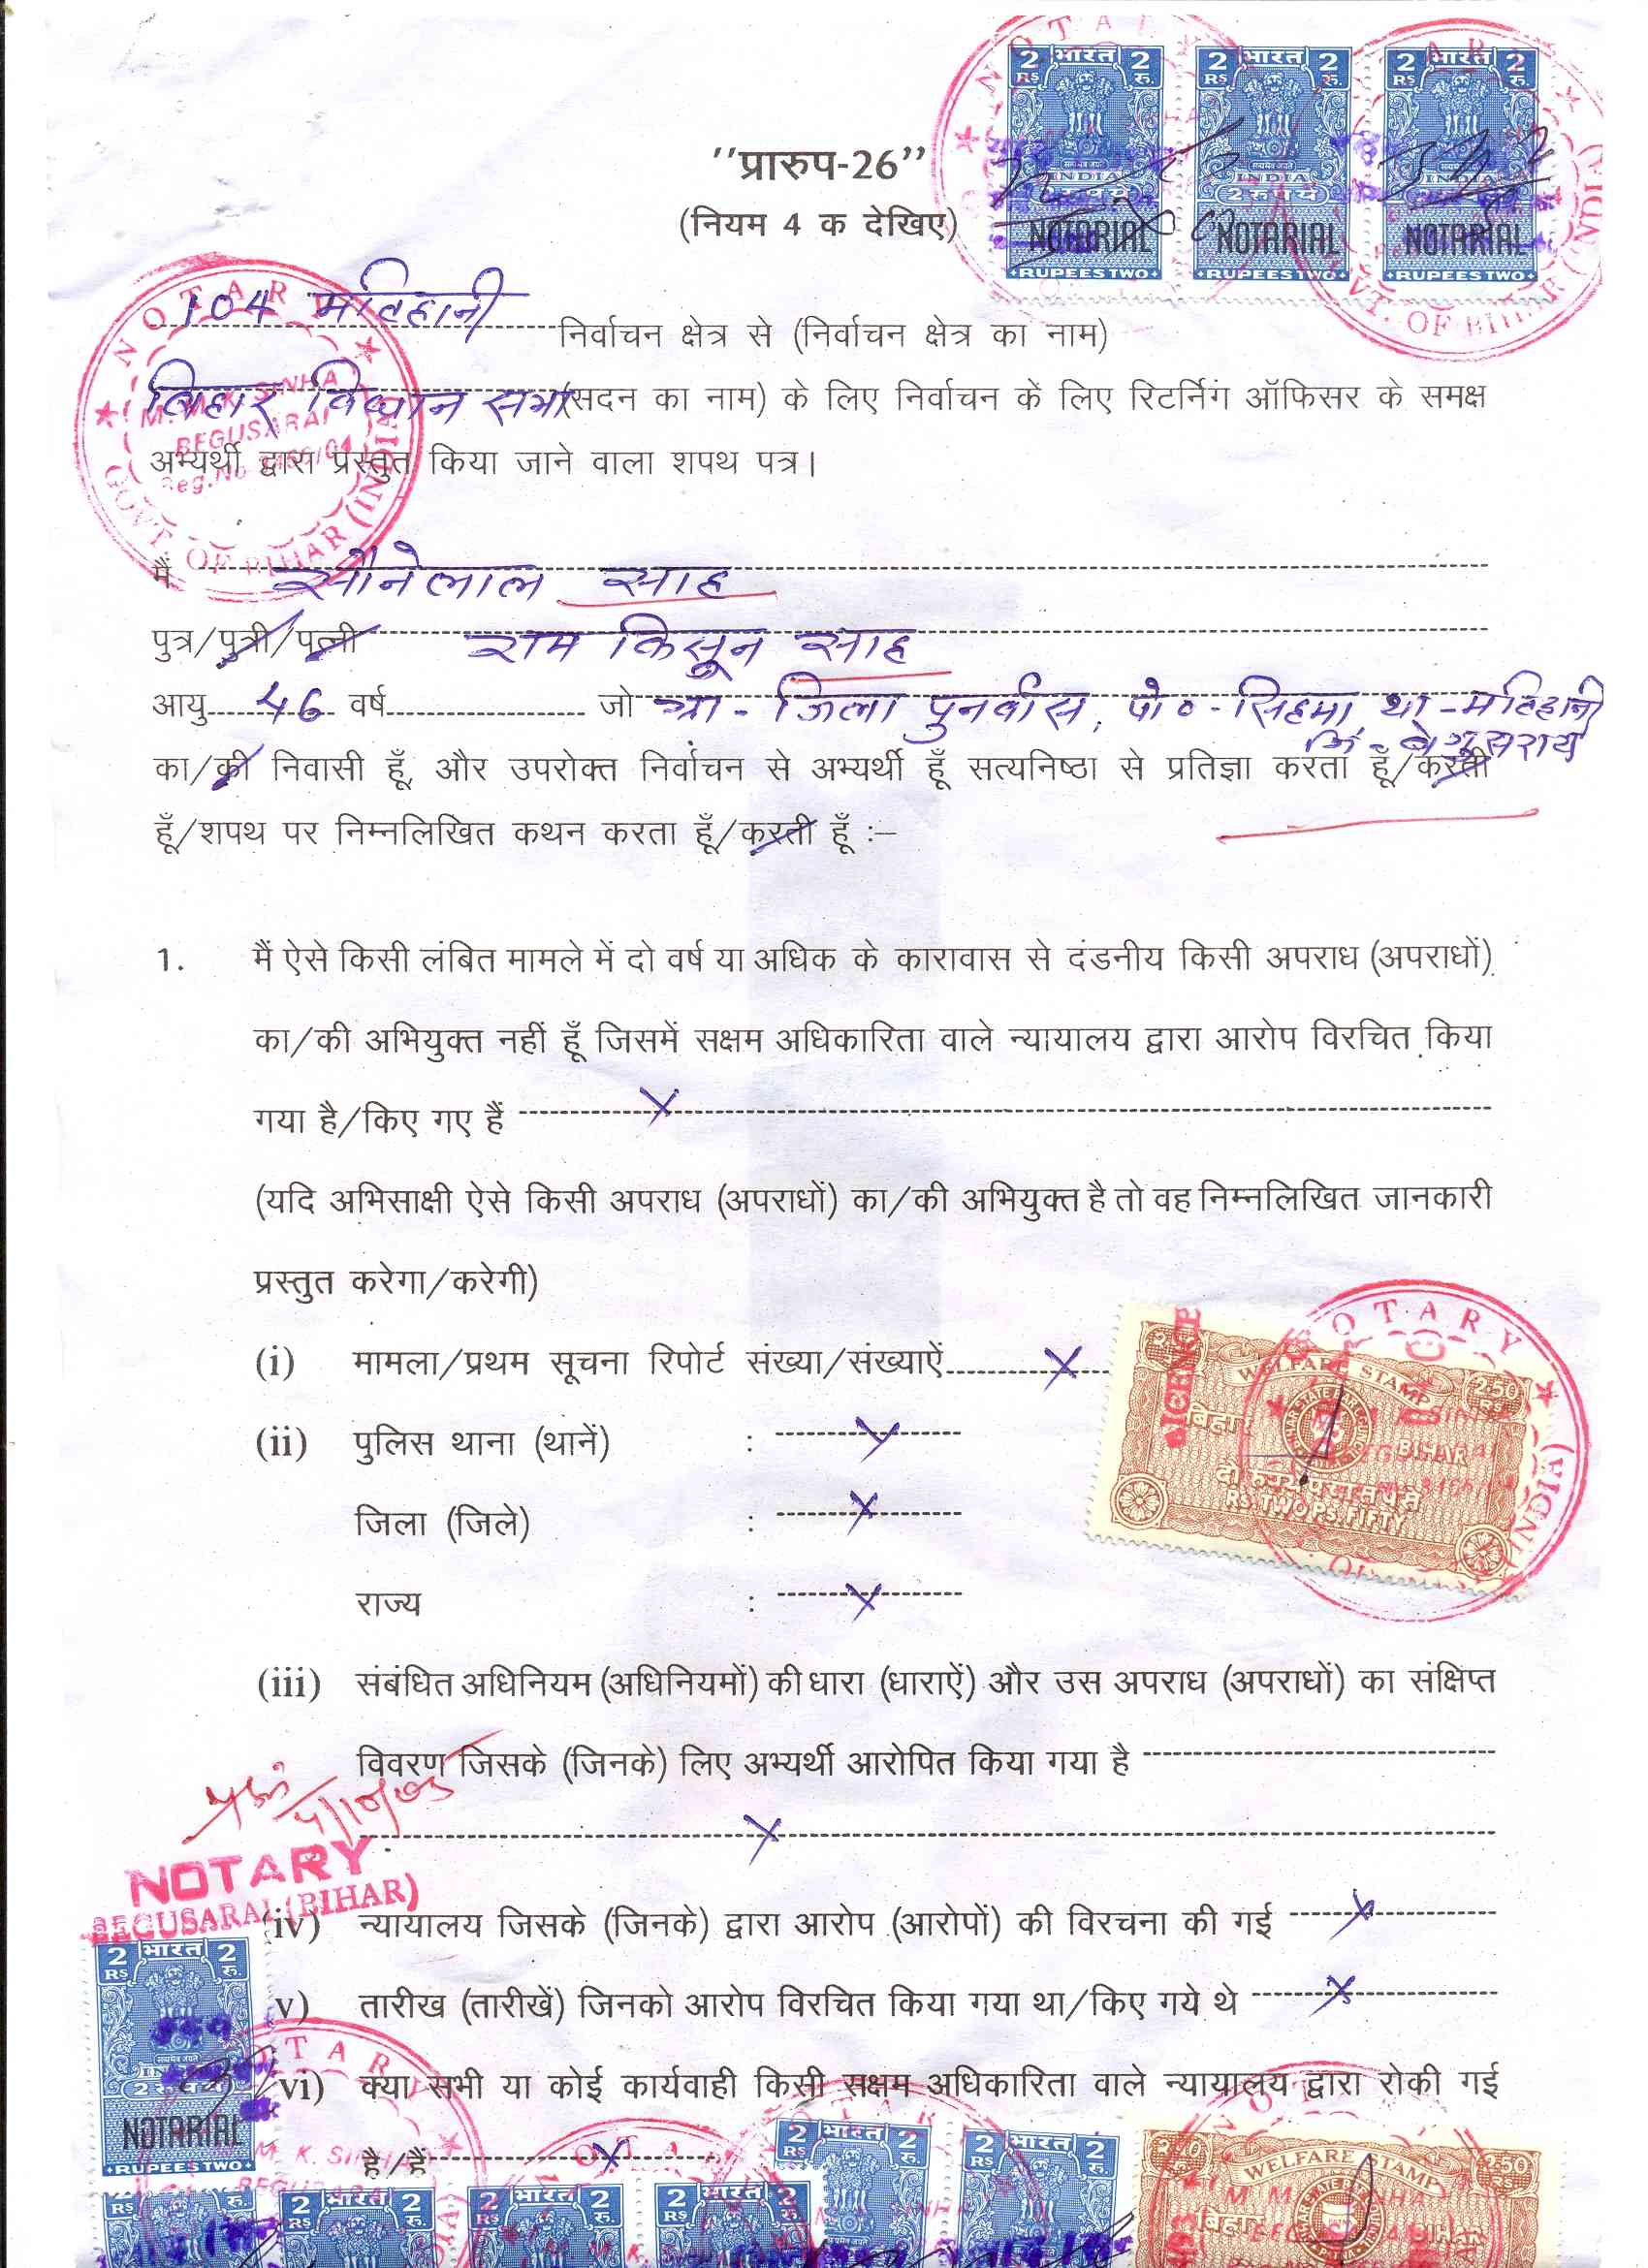 2 RS भारत 2 रु. 2 RS भारत 2 रु. 2 RS भारत 2 रु.
INDIA INDIA INDIA
NOTARIAL NOTARIAL NOTARIAL
RUPEES TWO RUPEES TWO RUPEES TWO
NOTARY
GOVT. OF BIHAR (INDIA)
''प्रारुप-26''
(नियम 4 क देखिए)
104 मटिहानी निर्वाचन क्षेत्र से (निर्वाचन क्षेत्र का नाम)
बिहार विधान सभा (सदन का नाम) के लिए निर्वाचन के लिए रिटर्निंग ऑफिसर के समक्ष
अभ्यर्थी द्वारा प्रस्तुत किया जाने वाला शपथ पत्र।
NOTARY
M. K. SINHA
BEGUSARAI
GOVT. OF BIHAR (INDIA)
मैं सोनेलाल साह
पुत्र/पुत्री/पत्नी राम किसून साह
आयु 46 वर्ष जो ग्रा - जिला पुनर्वास, पो० - सिहमा, था - मटिहानी
जि - बेगूसराय
का/की निवासी हूँ, और उपरोक्त निर्वाचन से अभ्यर्थी हूँ सत्यनिष्ठा से प्रतिज्ञा करता हूँ/करती
हूँ/शपथ पर निम्नलिखित कथन करता हूँ/करती हूँ :–
1. मैं ऐसे किसी लंबित मामले में दो वर्ष या अधिक के कारावास से दंडनीय किसी अपराध (अपराधों)
का/की अभियुक्त नहीं हूँ जिसमें सक्षम अधिकारिता वाले न्यायालय द्वारा आरोप विरचित किया
गया है/किए गए हैं X
(यदि अभिसाक्षी ऐसे किसी अपराध (अपराधों) का/की अभियुक्त है तो वह निम्नलिखित जानकारी
प्रस्तुत करेगा/करेगी)
(i) मामला/प्रथम सूचना रिपोर्ट संख्या/संख्याऐं X
(ii) पुलिस थाना (थानें) : X
जिला (जिले) : X
राज्य : X
NOTARY
WELFARE STAMP
2.50 RS
बिहार BIHAR
RS. TWO PS. FIFTY
(iii) संबंधित अधिनियम (अधिनियमों) की धारा (धाराऐं) और उस अपराध (अपराधों) का संक्षिप्त
विवरण जिसके (जिनके) लिए अभ्यर्थी आरोपित किया गया है
X
NOTARY
BEGUSARAI (BIHAR)
iv) न्यायालय जिसके (जिनके) द्वारा आरोप (आरोपों) की विरचना की गई X
v) तारीख (तारीखें) जिनको आरोप विरचित किया गया था/किए गये थे X
vi) क्या सभी या कोई कार्यवाही किसी सक्षम अधिकारिता वाले न्यायालय द्वारा रोकी गई
है/हैं X
2 RS भारत 2 रु.
NOTARIAL
RUPEES TWO
NOTARY
M. K. SINHA
2 RS भारत 2 रु. 2 RS भारत 2 रु.
WELFARE STAMP
2.50
बिहार BIHAR
RS. रु. 2 भारत 2 2 भारत 2 2 भारत 2